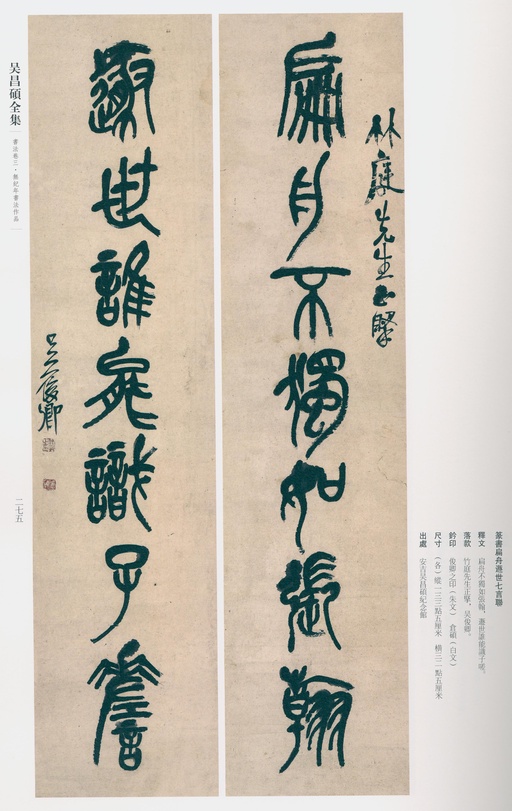 竹庭先生正擘
扁舟不獨如張翰
遯世誰能識子嗟
吳俊卿
篆書扁舟遯世七言聯
釋文 扁舟不獨如張翰,遯世誰能識子嗟。
落款 竹庭先生正擘,吳俊卿。
鈐印 俊卿之印(朱文) 倉碩(白文)
尺寸 (各)縱一三三點五厘米 橫三二點五厘米
出處 安吉吳昌碩紀念館
吴昌碩全集
書法卷三·無紀年書法作品
二七五